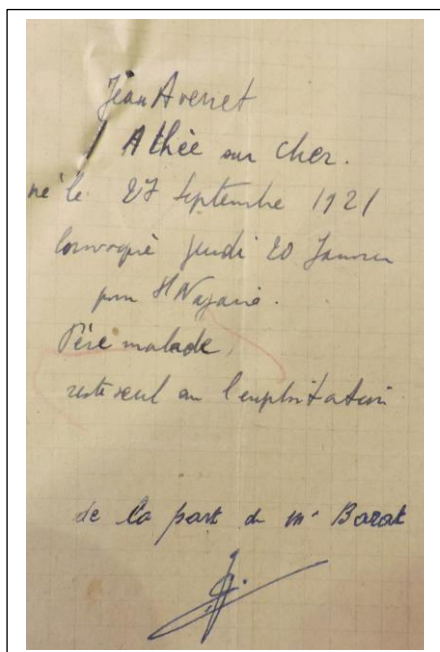 Jean Avenet
Athée sur Cher.
né le 27 Septembre 1921
Convoqué jeudi 20 Janvier
pour St Nazaire.
Père malade,
reste seul sur l'exploitation
de la part de Mr Barat